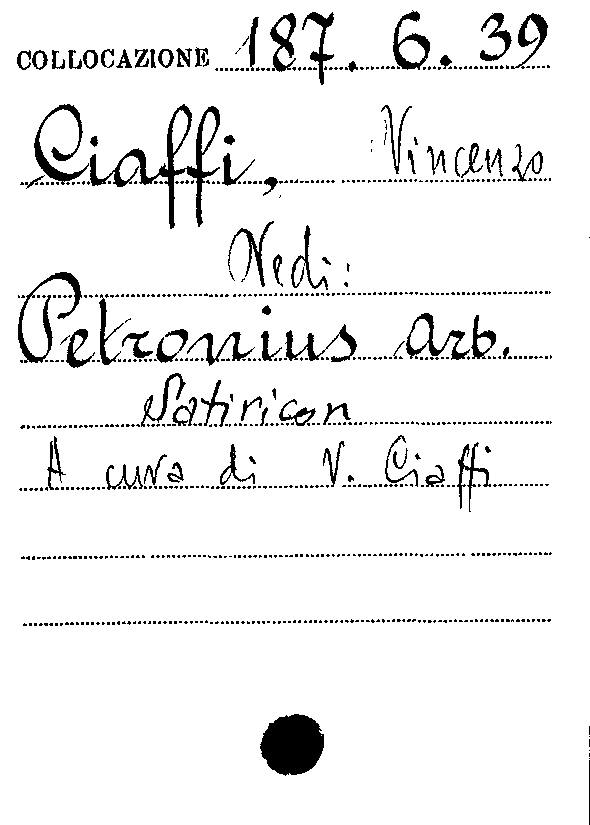 COLLOCAZIONE 187. 6. 39
Ciaffi, Vincenzo
Vedi:
Petronius Arb.
Satiricon
A cura di V. Ciaffi